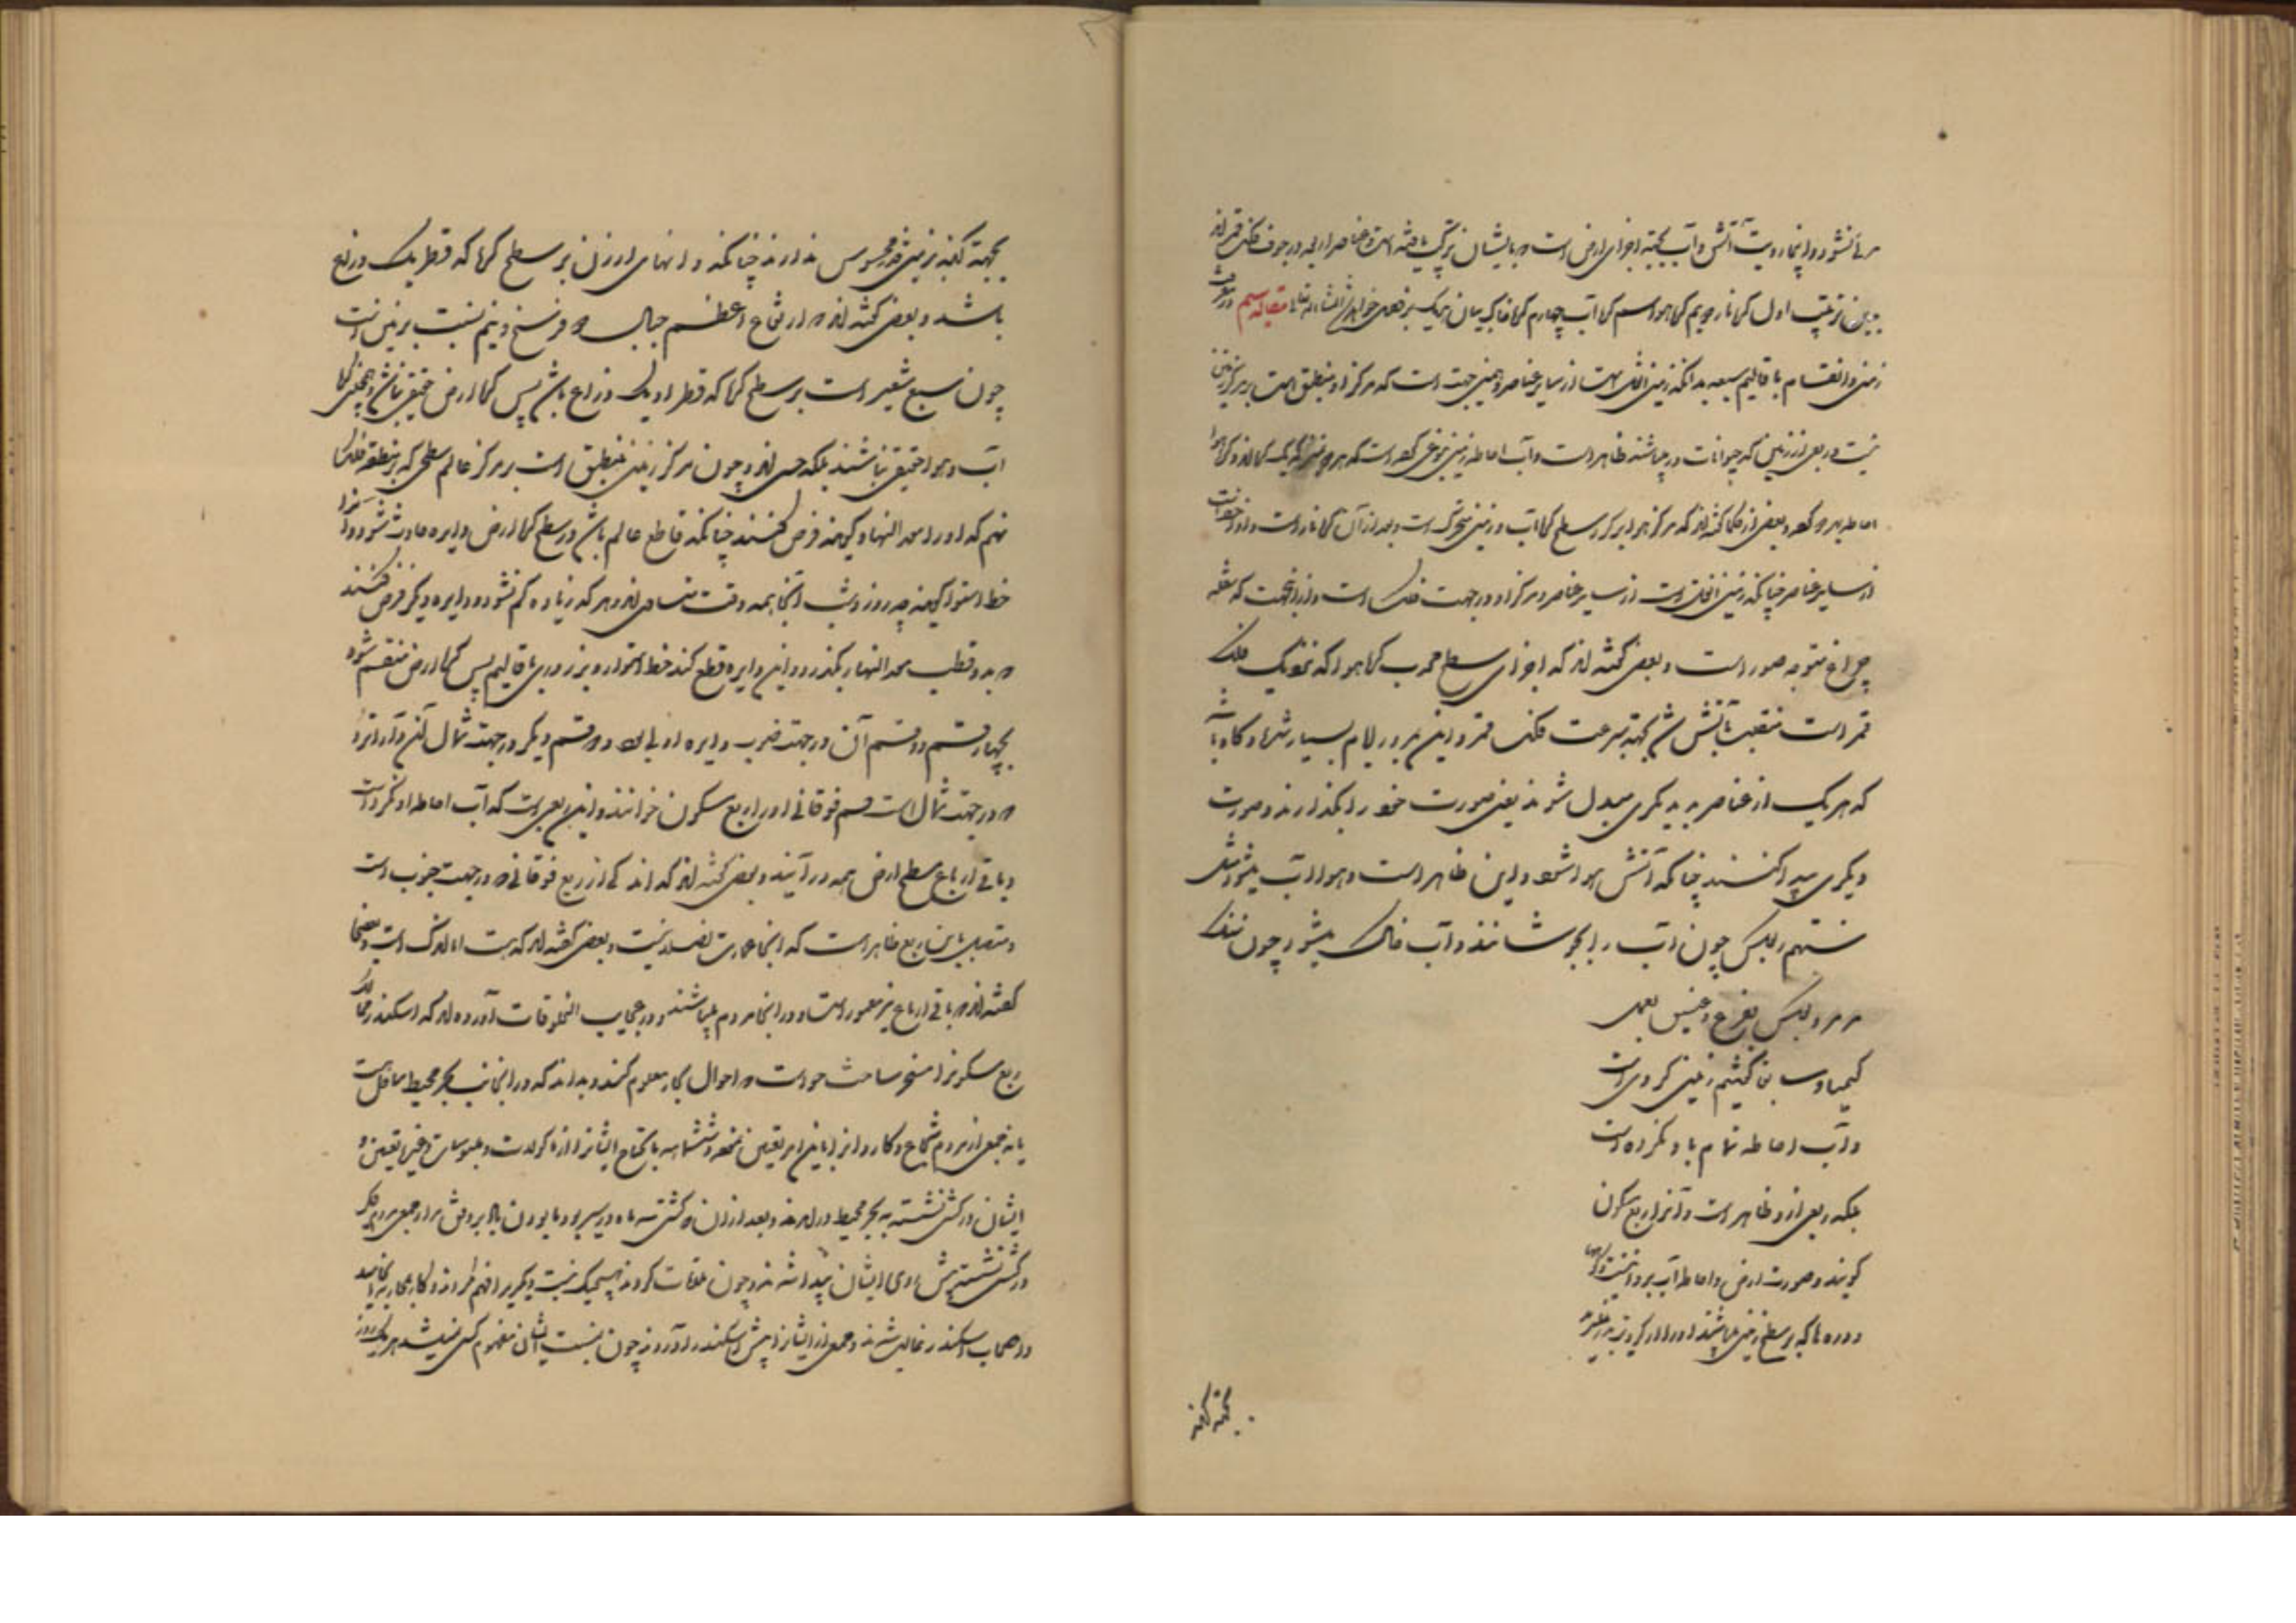 مرئی نشود و اینجا رویت آتش و آب بجهة اجزای ارض است که بایشان ترکیب یافته است و عناصر اربعه در جوف فلک قمراند
بدین ترتیب اول کره نار دویم کره هوا سیم کره آب چهارم کره خاک بیان هر یک بر نحوی خواهد شد انشاء الله تعالی مقاله سیم در معرفت
زمین و انقسام باقالیم سبعه بدانکه زمین اثقل است از سایر عناصر و همین جهت است که مرکز او منطبق است بر مرکز
نیست و ربعی از زمین که حیوانات در میباشند ظاهر است و آب احاطه زمین بنوعی کرده است که هر دو بمنزله یک کره اند و کره هوا
احاطه بهر دو کرده و بعضی از حکما گفته اند که مرکز هوا بر کره سطح کره آب و زمین متحرک است و بعد از آن کره نار است و او اخف است
از سایر عناصر چنانکه زمین اثقل است از سایر عناصر و مرکز او در جهت فلک است و ازینجهت که شعله
چراغ متوجه صور است و بعضی گفته اند که اجزای سطح محدب کره هوا که نزدیک فلک
قمر است منقلب بآتش شده بجهة سرعت فلک قمر و این مرور ایام بسیار شد و گاه باشد
که هر یک از عناصر بدیگری مبدل شوند یعنی صورت خود را بگذارند و صورت
دیگری پیدا کنند چنانکه آتش هوا شود و این ظاهر است و هوا آب میشود مثل
شبنم و بعکس چون آب را بجوشانند و آب خاک میشود چون نمک
و بعکس
کیمیا و سابق گفتیم زمین کروی است
و آب احاطه تمام باو نکرده است
بلکه ربعی ازو ظاهر است و آنرا ربع مسکون
گویند و صورت ارض و احاطه آب برو اینست
و دره ها که بر سطح زمین میباشند او را از کرویت بدر
بجهة آنکه
بجهة آنکه بزمین قدر محسوس ندارند چنانکه دانهای ارزن بر سطح کره که قطر یک ذرع
باشد و بعضی گفته اند که ارتفاع اعظم جبال دو فرسخ و نیم نسبت بزمین است
چون سبع شعیر است بر سطح کره که قطر او یک ذراع باشد پس کره ارض حقیقی نباشد و همچنین کره
آب و هوا حقیقی نباشند بلکه حسی اند و چون مرکز زمین منطبق است بر مرکز عالم سطحی که بر منطقه فلک
نهم که او را معدل النهار گویند فرض کنند چنانکه قاطع عالم باشد در سطح کره ارض دایره حادث شود و آنرا
خط استوا گویند چه روز و شب آنجا همه وقت متساوی اند و هرگز زیاده و کم نشود و دایره دیگر فرض کنند
که بدو قطب معدل النهار بگذرد و این دایره قطع کند خط استوا را بر زوایای قایمه پس کره ارض منقسم شود
بچهار قسم دو قسم آن در جهت جنوب دایره اولی اند و دو قسم دیگر در جهت شمال آن و آنرا
که در جهت شمال است قسم فوقانی او را ربع مسکون خوانند و این ربعی است که آب احاطه او نکرده است
و باقی ارباع سطح ارض همه در آبند و بعضی گفته اند که اندکی از ربع فوقانی که در جهت جنوب است
و متصل باین ربع ظاهر است که اینجا عمارت نیست و بعضی گفته اند که هست اما اندک است و بعضی
گفته اند که باقی ارباع نیز معمور است و در آنجا مردم میباشند و در عجایب المخلوقات آورده اند که اسکندر
ربع مسکونرا مسخر ساخت خواست که احوال بحار معلوم کند و بداند که در آنجانب بحر محیط ساحل هست
یا نه جمعی از مردم شجاع و کاردانرا باین امر تعیین نمود و ششماهه مایحتاج ایشانرا از ماکولات و ملبوسات و غیره تعیین
ایشان در کشتی نشسته به بحر محیط در آمدند و بعد از آن که کشتی سه ماه در سیر بود جمعی مردم دیگر
در کشتی نشسته پیش روی ایشان پیدا شدند و چون ملاقات کردند هیچیک نسبت دیگری را فهم نکردند و کار بمحاربه انجامید
و اصحاب اسکندر غالب شدند و جمعی از ایشانرا پیش اسکندر آوردند چون نسبت ایشان مفهوم کس نمیشد